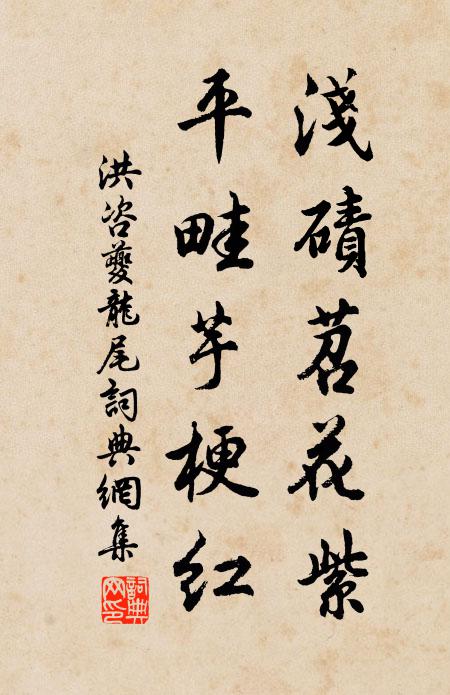 淺磧苕花紫
平畦芋梗紅
洪咨夔龍尾詞典網集
詞典網印